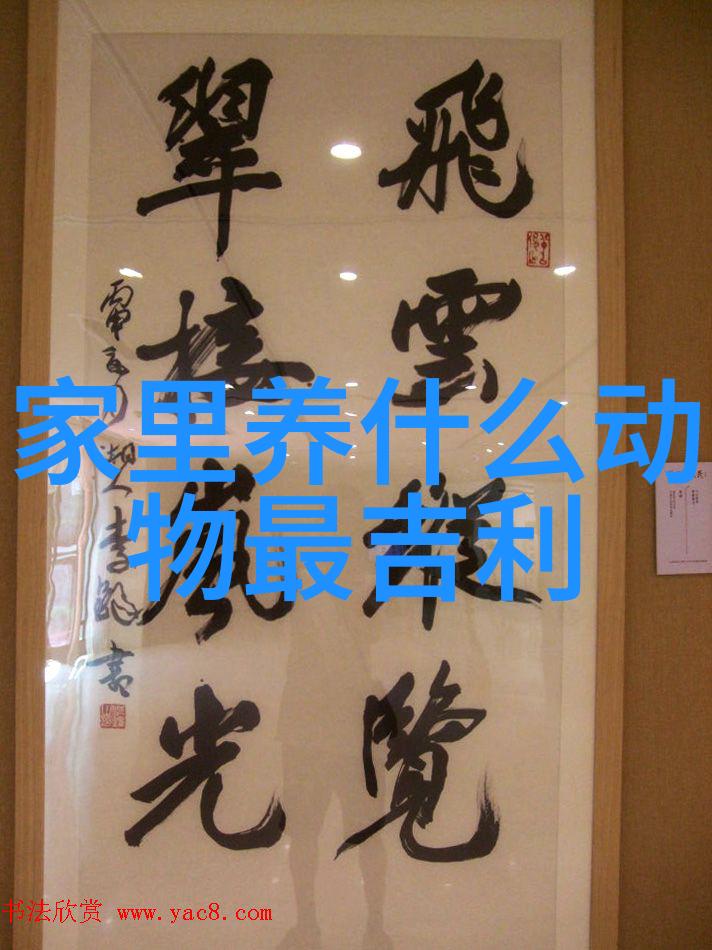 飛雲縱覽
翠接嵐光
李鐸書
家里养什么动
物最吉利
书法欣赏 www.yac8.com